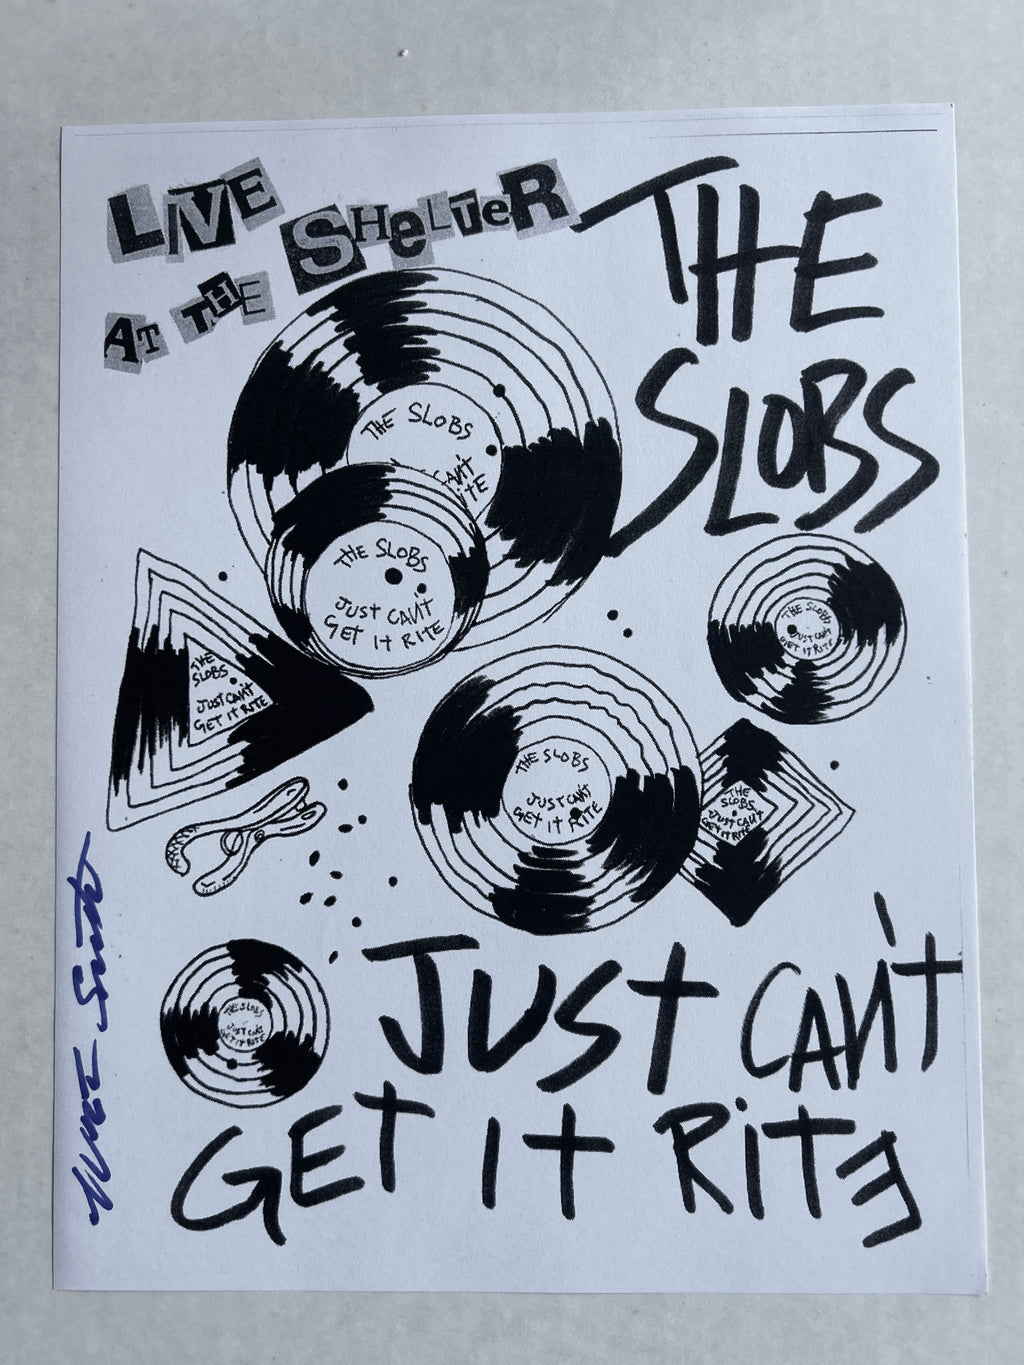 LIVE
AT THE SHELTER
THE
SLOBS
THE SLOBS
CAN'T
ITE
THE SLOBS
JUST CAN'T
GET IT RITE
THE SLOBS
JUST CAN'T
GET IT RITE
THE
SLOBS
JUST CAN'T
GET IT RITE
THE SLOBS
JUST CAN'T
GET IT RITE
THE
SLOBS
JUST CAN'T
GET IT RITE
THE SLOBS
JUST CAN'T
GET IT RITE
JUST CAN'T
GET IT RITE